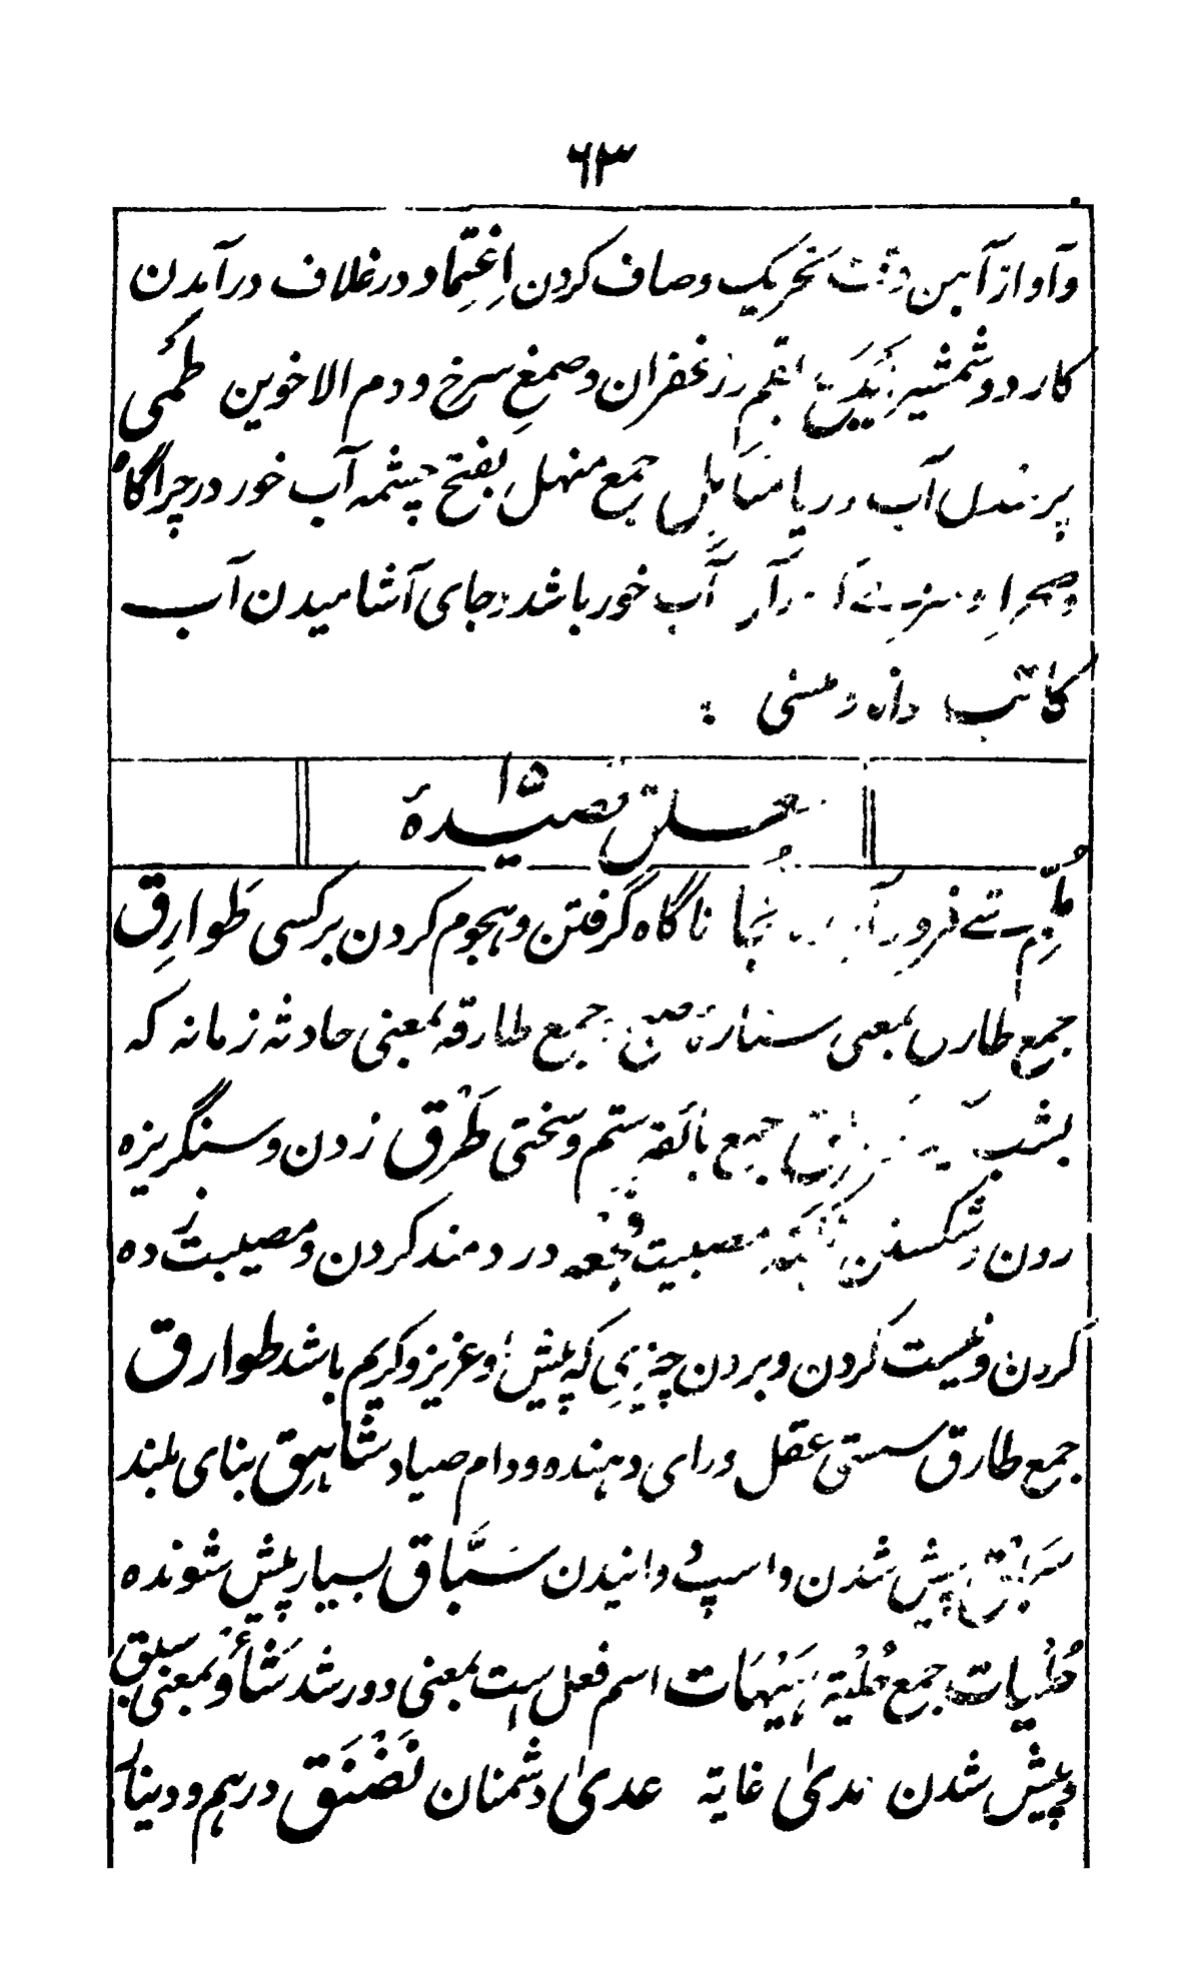 ٦٣
وآواز آہن تحریک وصاف کردن اِغتِماد در غلاف در آمدن
کارد و شمشیر زعفران وصمغِ سرخ و دم الاخوین طَمیُ
پر شدن آب دریا مناہل جمع منہل بفتح چشمہ آب خور در چراگاہ
وصحرا و آب خور باشد وجای آشامیدن آب
کاتب
حل قصیدۂ ۱۵
مُلِمّ فرود فُجا ناگاہ گرفتن وہجوم کردن بر کسی طَوارِق
جمع طارق بمعنی ستارۂ صبح جمع طارقہ بمعنی حادثہ زمانہ کہ
بشب جمع بائقہ ستم وسختی طَرْق زدن وسنگریزہ
زدن وشکستن مصیبت فَجْعہ دردمند کردن ومصیبت زدہ
کردن ونیست کردن وبردن چیزی کہ پیش او عزیز و کریم باشد طوارق
جمع طارق سستی عقل ورای دہندہ ودام صیاد شاہِق بنای بلند
پیش شدن واسپ دوانیدن سَبَّاق بسیار پیش شوندہ
حُلْیات جمع حُلْیة ہَیْہَات اسم فعل است بمعنی دور شد شَأْوُ بمعنی سبق
وپیش شدن مدیٰ غایة عدیٰ دشمنان درہم ودینار